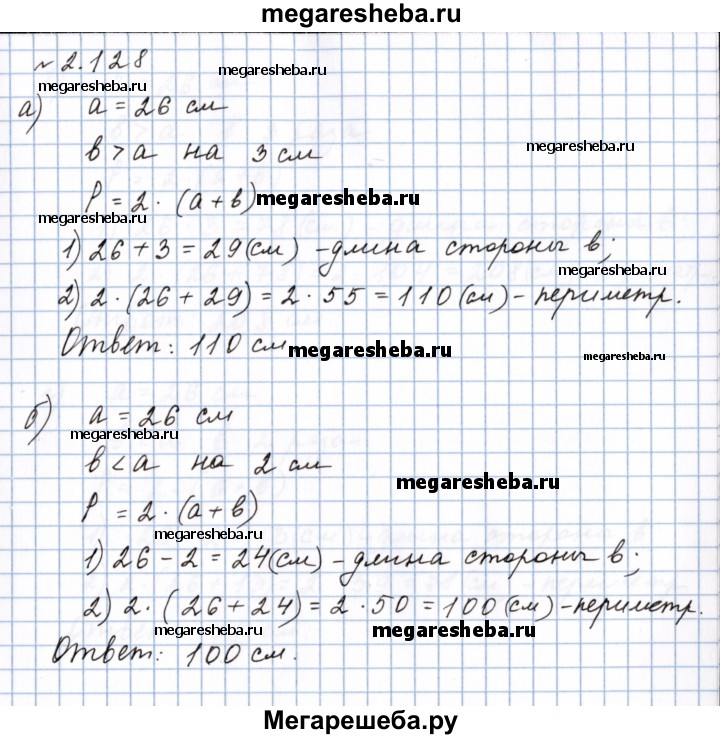 megaresheba.ru
№ 2.128
megaresheba.ru
megaresheba.ru
а) a = 26 см
megaresheba.ru
в > a на 3 см
P = 2 · (a + в)
megaresheba.ru
megaresheba.ru
1) 26 + 3 = 29 (см) - длина стороны в;
megaresheba.ru
2) 2 · (26 + 29) = 2 · 55 = 110 (см) - периметр.
Ответ: 110 см
megaresheba.ru
megaresheba.ru
б) a = 26 см
megaresheba.ru
в < a на 2 см
megaresheba.ru
P = 2 · (a + в)
megaresheba.ru
1) 26 - 2 = 24 (см) - длина стороны в;
megaresheba.ru
2) 2 · (26 + 24) = 2 · 50 = 100 (см) - периметр.
megaresheba.ru
megaresheba.ru
Ответ: 100 см.
Мегарешеба.ру